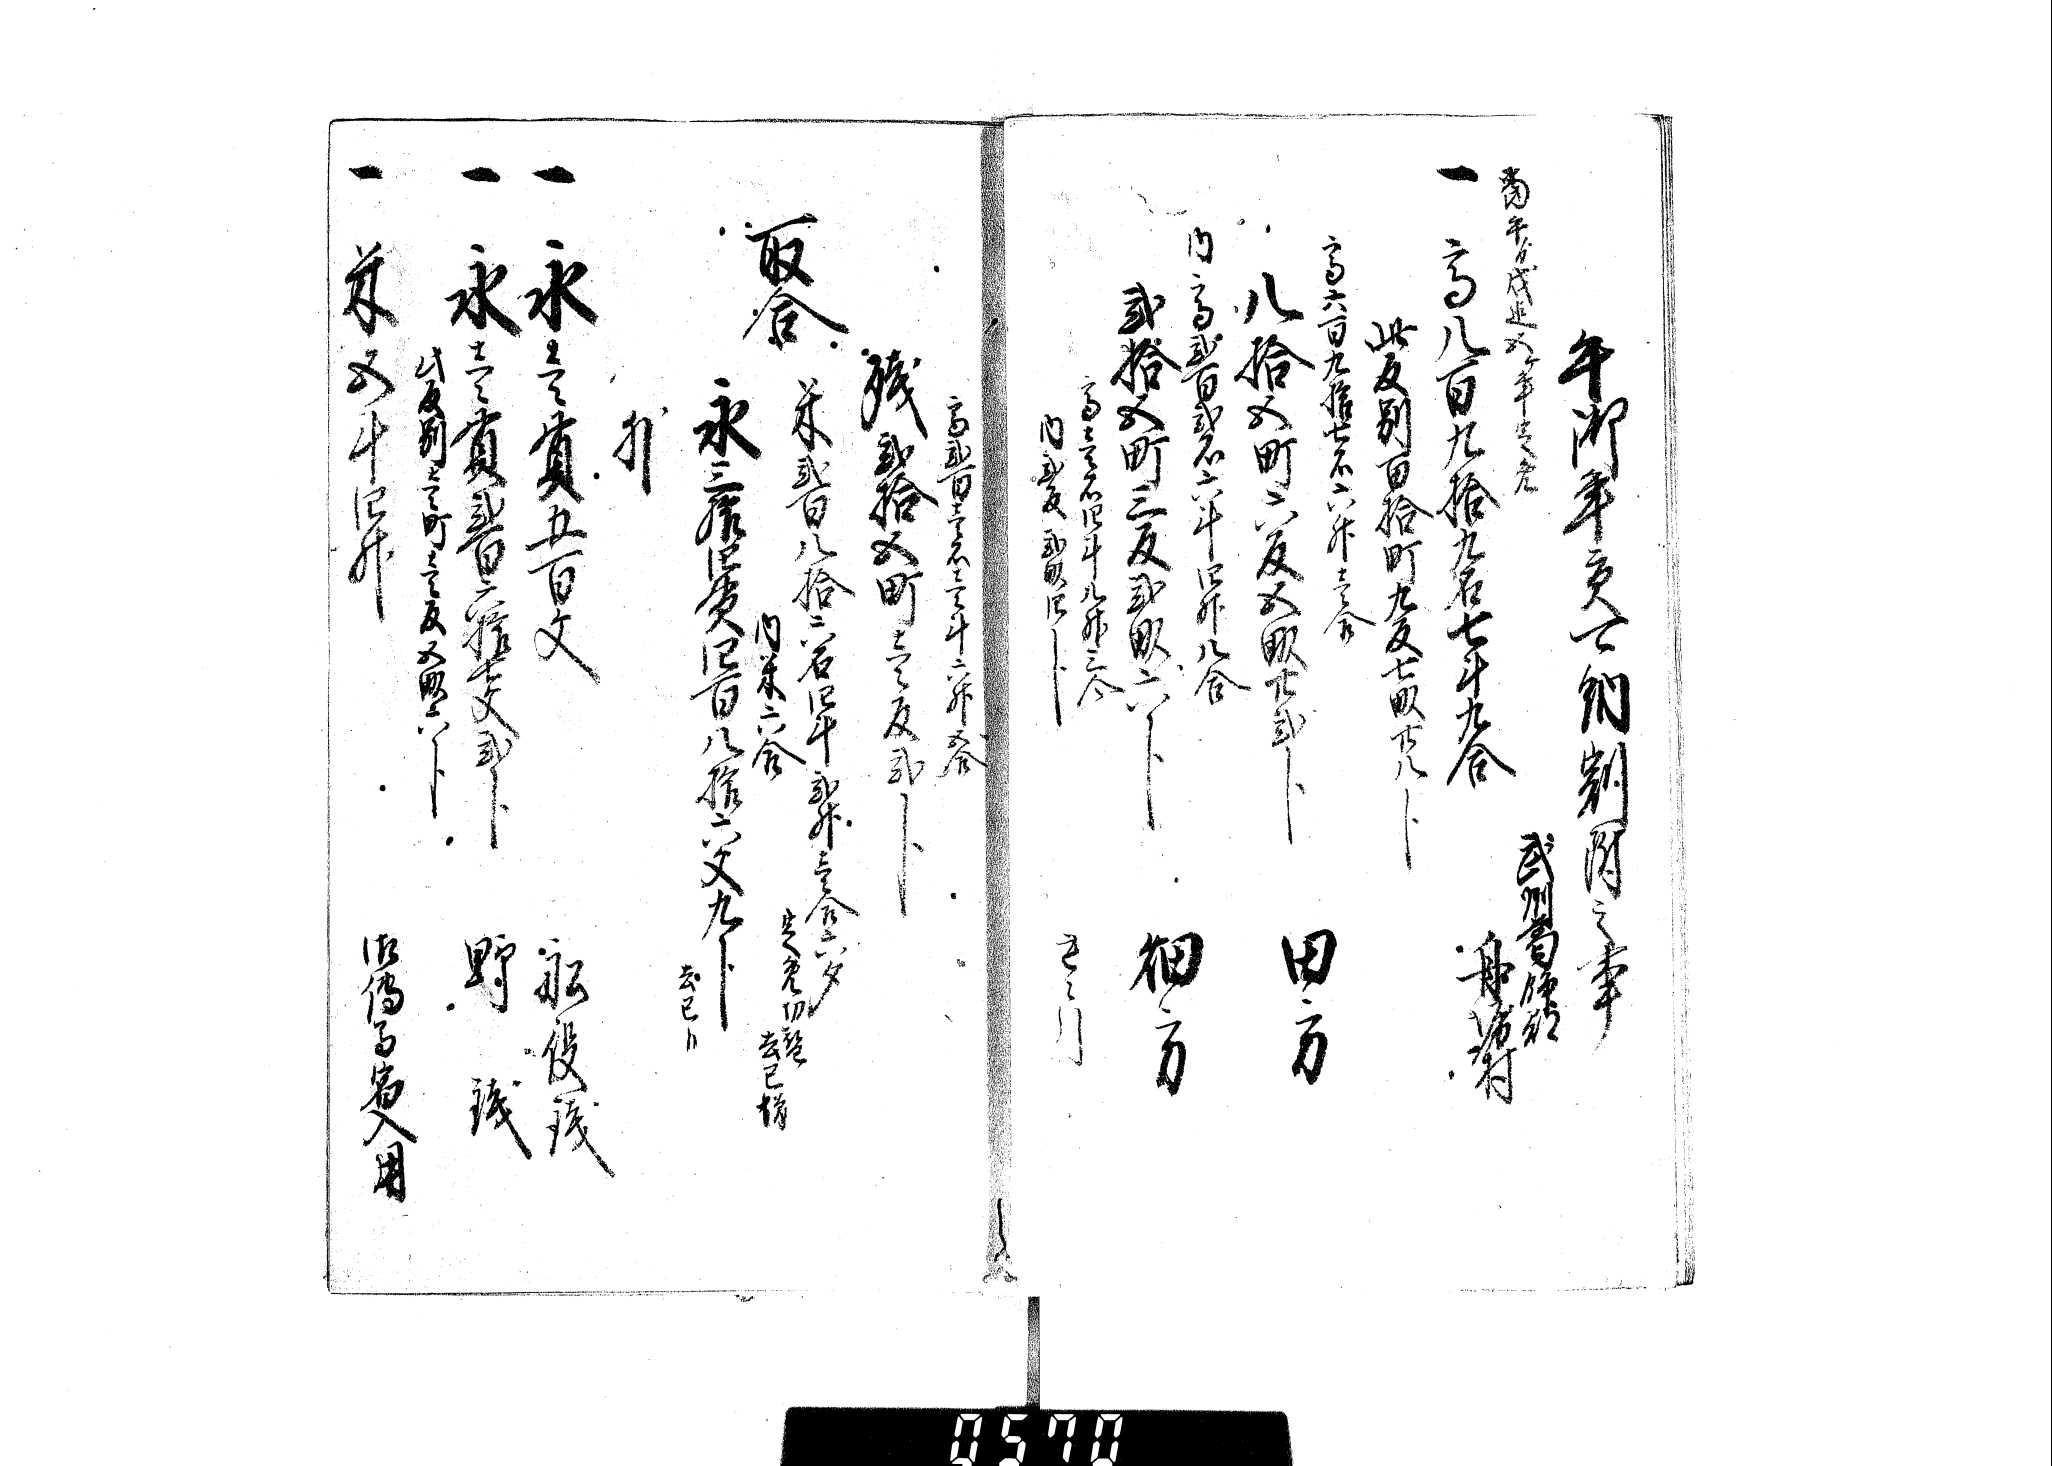 午御年貢可納割附之事
武州葛飾郡
舟堀村
当午より戌迄五ヶ年定免
一 高八百九拾九石七斗九合
此反別百拾町九反七畝廿八卜
高六百九拾七石六升壱合
八拾五町六反五畝廿弐卜 田方
内 高弐百弐石六斗四升八合
弐拾五町三反弐畝六卜 畑方
高壱石四斗八升三合
内 弐反弐畝四卜
高弐百壱石壱斗六升五合
残 弐拾五町壱反弐卜
取合
米弐百八拾六石四斗弐升壱合六夕
定免切替 去巳増
内米六合
永三拾四貫四百八拾六文九卜
去巳
外
一 永壱貫五百文 船役銭
一 永壱貫弐百六拾七文弐卜 野銭
此反別壱町壱反五畝六卜
一 米五斗四升 御伝馬宿入用
0570